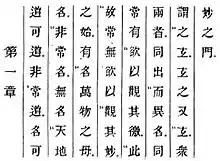 第一章
道可道。非常道。名可
名。非常名。無名天地
之始。有名萬物之母。
故常無欲以觀其妙。
常有欲以觀其徼。此
兩者同出而異名。同
謂之玄。玄之又玄。衆
妙之門。